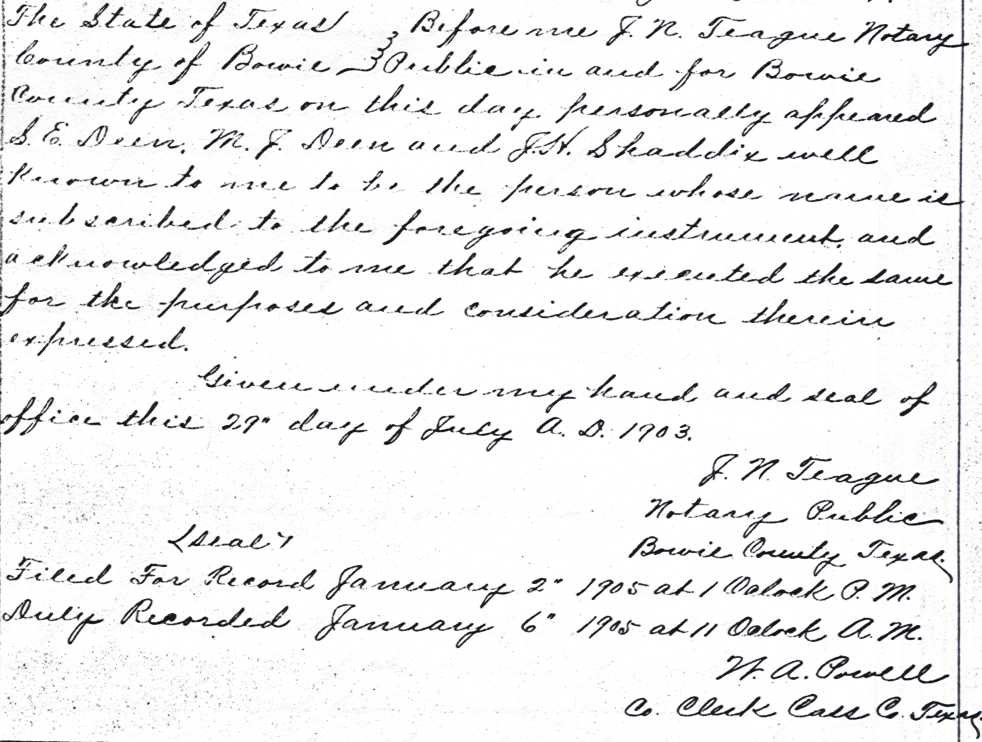 The State of Texas } Before me J. N. Teague Notary
County of Bowie } Public in and for Bowie
County Texas on this day personally appeared
S. E. Deen, M. J. Deen and J. H. Shaddix well
known to me to be the person whose name is
subscribed to the foregoing instrument, and
acknowledged to me that he executed the same
for the purposes and consideration therein
expressed.
Given under my hand and seal of
office this 29" day of July A. D. 1903.
J. N. Teague
Notary Public
(seal)
Bowie County Texas.
Filed For Record January 2" 1905 at 1 Oclock P. M.
Duly Recorded January 6" 1905 at 11 Oclock A. M.
W. A. Powell
Co. Clerk Cass Co. Texas.